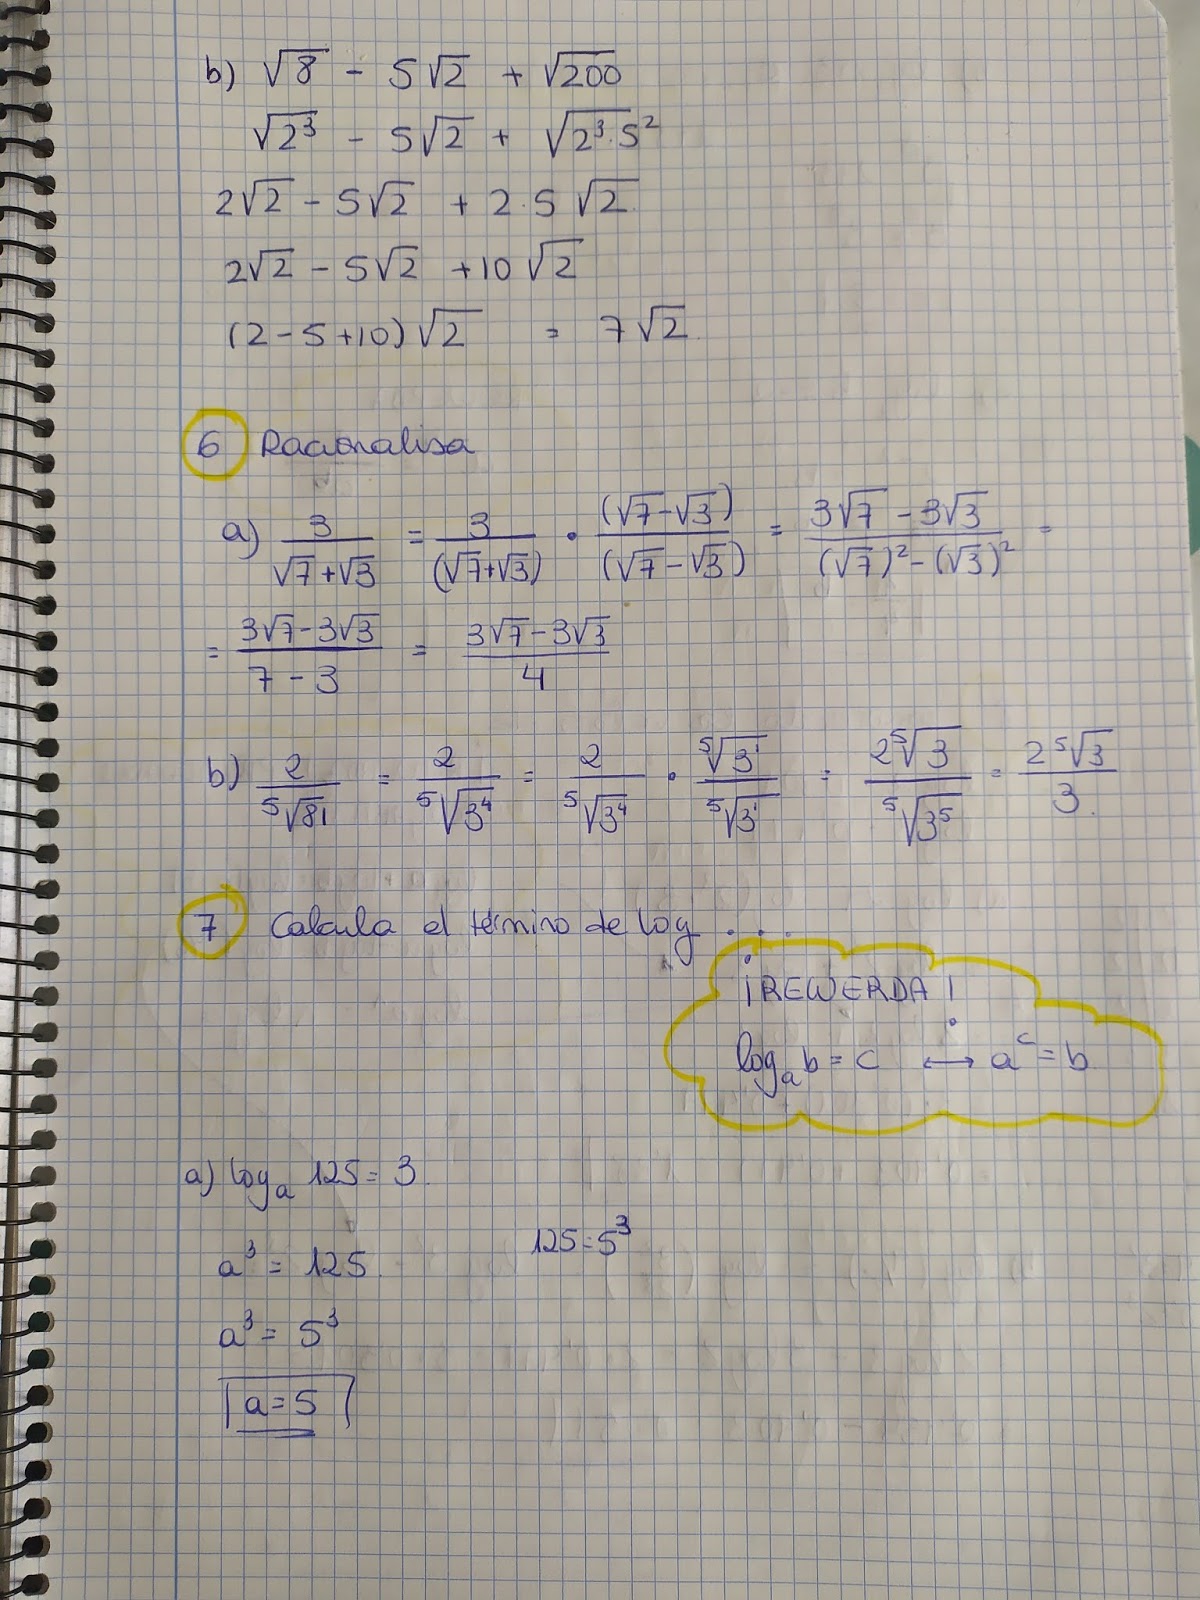 b) √8 - 5√2 + √200
√2³ - 5√2 + √2³·5²
2√2 - 5√2 + 2·5 √2
2√2 - 5√2 + 10√2
(2-5+10)√2 = 7√2
6 Racionalisa
a) 3/(√7+√3) = 3/(√7+√3) · (√7-√3)/(√7-√3) = (3√7-3√3)/((√7)²-(√3)²) =
= (3√7-3√3)/(7-3) = (3√7-3√3)/4
b) 2/⁵√81 = 2/⁵√3⁴ = 2/⁵√3⁴ · ⁵√3¹/⁵√3¹ = 2⁵√3/⁵√3⁵ = 2⁵√3/3.
7 Calcula el término de log ....
¡RECUERDA!
logₐ b = c ⟷ aᶜ = b
a) logₐ 125 = 3.
a³ = 125. 125 = 5³
a³ = 5³
a = 5